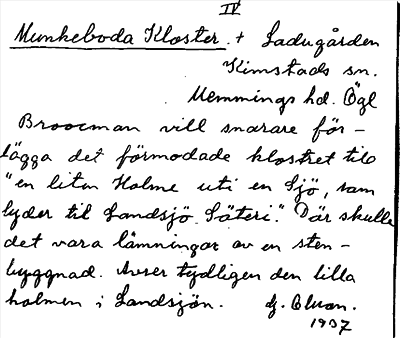 IV
Munkeboda Kloster. + Ladugården
Kimstads sn.
Memmings hd. Ögl
Broocman vill snarare för-
lägga det förmodade klostret till
"en liten Holme uti en Sjö, som
lyder til Landsjö Säteri." Där skulle
det vara lämningar av en sten-
byggnad. Avser tydligen den lilla
holmen i Landsjön.
1937